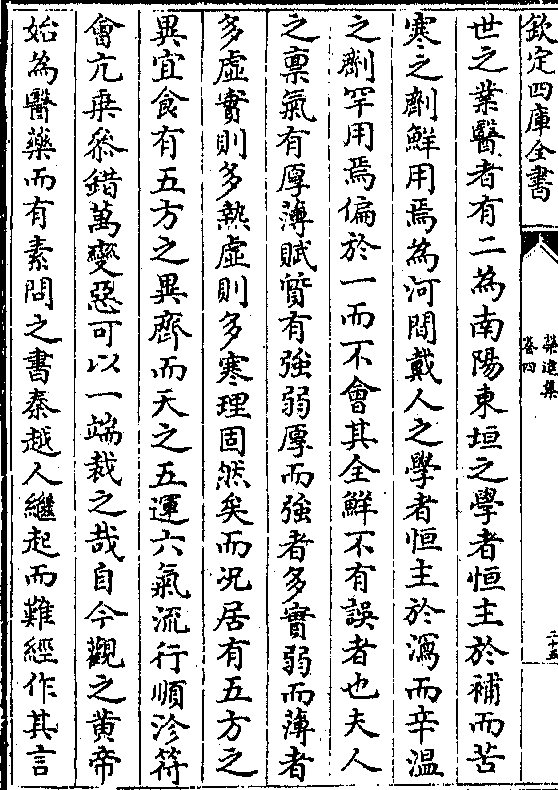 欽定四庫全書
卷四
世之業醫者有二為南陽東垣之學者恒主於補而苦
寒之劑鮮用焉為河間戴人之學者恒主於瀉而辛溫
之劑罕用焉偏於一而不會其全鮮不有誤者也夫人
之禀氣有厚薄賦質有強弱厚而強者多實弱而薄者
多虛實則多熱虛則多寒理固然矣而况居有五方之
異宜食有五方之異齊而天之五運六氣流行順沴符
會亢乗叅錯萬變惡可以一端裁之哉自今觀之黄帝
始為醫藥而有素問之書秦越人繼起而難經作其言